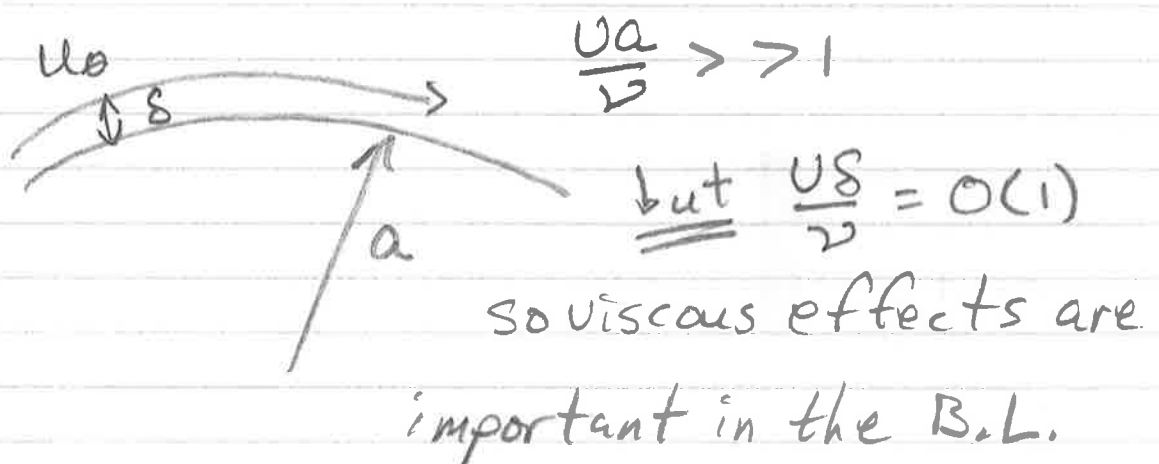 Uθ
δ
Ua/ν >>1
a
but Uδ/ν = O(1)
so viscous effects are
important in the B.L.